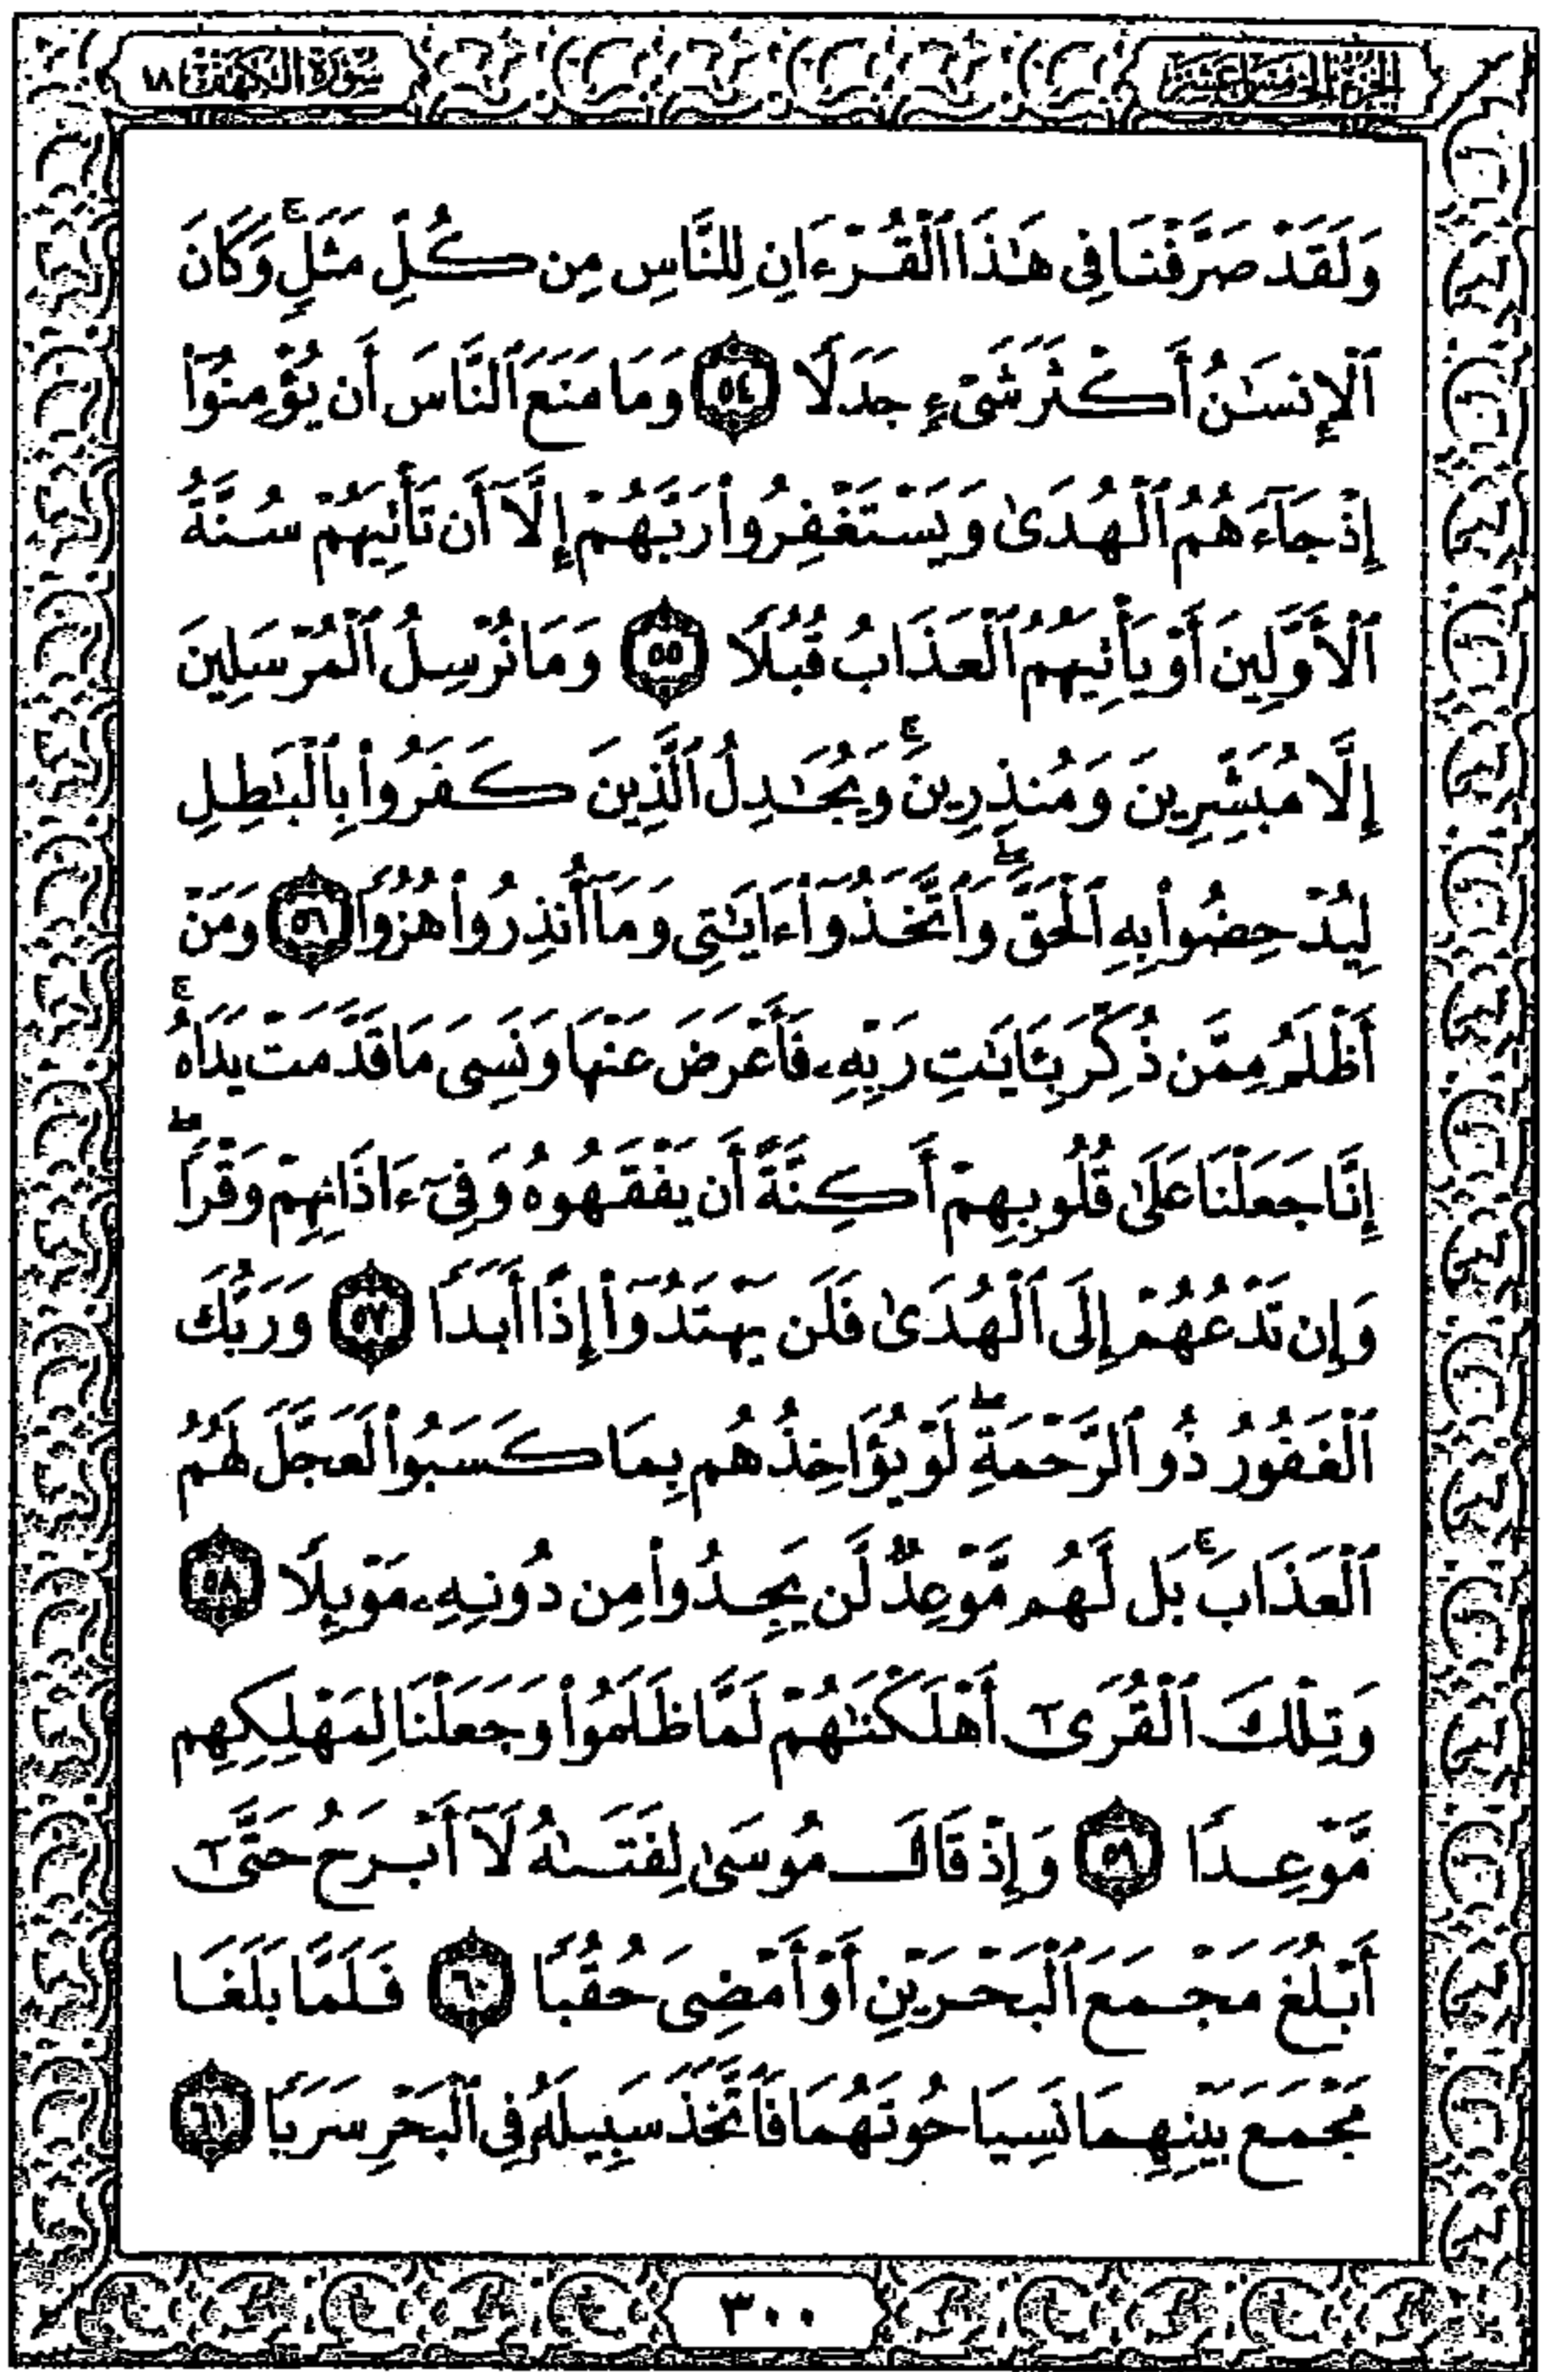 الجزء الخامس عشر
سورة الكهف ١٨
وَلَقَدْ صَرَّفْنَا فِى هَٰذَا ٱلْقُرْءَانِ لِلنَّاسِ مِن كُلِّ مَثَلٍۢ ۚ وَكَانَ
ٱلْإِنسَٰنُ أَكْثَرَ شَىْءٍۢ جَدَلًۭا ٥٤ وَمَا مَنَعَ ٱلنَّاسَ أَن يُؤْمِنُوٓا۟
إِذْ جَآءَهُمُ ٱلْهُدَىٰ وَيَسْتَغْفِرُوا۟ رَبَّهُمْ إِلَّآ أَن تَأْتِيَهُمْ سُنَّةُ
ٱلْأَوَّلِينَ أَوْ يَأْتِيَهُمُ ٱلْعَذَابُ قُبُلًۭا ٥٥ وَمَا نُرْسِلُ ٱلْمُرْسَلِينَ
إِلَّا مُبَشِّرِينَ وَمُنذِرِينَ ۚ وَيُجَٰدِلُ ٱلَّذِينَ كَفَرُوا۟ بِٱلْبَٰطِلِ
لِيُدْحِضُوا۟ بِهِ ٱلْحَقَّ ۖ وَٱتَّخَذُوٓا۟ ءَايَٰتِى وَمَآ أُنذِرُوا۟ هُزُوًۭا ٥٦ وَمَنْ
أَظْلَمُ مِمَّن ذُكِّرَ بِـَٔايَٰتِ رَبِّهِۦ فَأَعْرَضَ عَنْهَا وَنَسِىَ مَا قَدَّمَتْ يَدَاهُ ۚ
إِنَّا جَعَلْنَا عَلَىٰ قُلُوبِهِمْ أَكِنَّةً أَن يَفْقَهُوهُ وَفِىٓ ءَاذَانِهِمْ وَقْرًۭا ۖ
وَإِن تَدْعُهُمْ إِلَى ٱلْهُدَىٰ فَلَن يَهْتَدُوٓا۟ إِذًا أَبَدًۭا ٥٧ وَرَبُّكَ
ٱلْغَفُورُ ذُو ٱلرَّحْمَةِ ۖ لَوْ يُؤَاخِذُهُم بِمَا كَسَبُوا۟ لَعَجَّلَ لَهُمُ
ٱلْعَذَابَ ۚ بَل لَّهُم مَّوْعِدٌۭ لَّن يَجِدُوا۟ مِن دُونِهِۦ مَوْئِلًۭا ٥٨
وَتِلْكَ ٱلْقُرَىٰٓ أَهْلَكْنَٰهُمْ لَمَّا ظَلَمُوا۟ وَجَعَلْنَا لِمَهْلِكِهِم
مَّوْعِدًۭا ٥٩ وَإِذْ قَالَ مُوسَىٰ لِفَتَىٰهُ لَآ أَبْرَحُ حَتَّىٰٓ
أَبْلُغَ مَجْمَعَ ٱلْبَحْرَيْنِ أَوْ أَمْضِىَ حُقُبًۭا ٦٠ فَلَمَّا بَلَغَا
مَجْمَعَ بَيْنِهِمَا نَسِيَا حُوتَهُمَا فَٱتَّخَذَ سَبِيلَهُۥ فِى ٱلْبَحْرِ سَرَبًۭا ٦١
٣٠٠